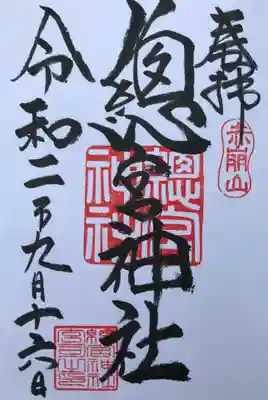 奉拝
赤崩山
總宮神社
總宮神社
令和二年九月十六日
總宮神社
宮司之印